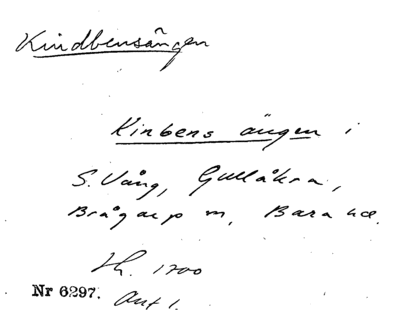 Kindbensängen
Kinbens ängen i
S. Vång, Gullåkra,
Brågarp m, Bara hd.
Jh. 1700
Nr 6297. Ant 1.